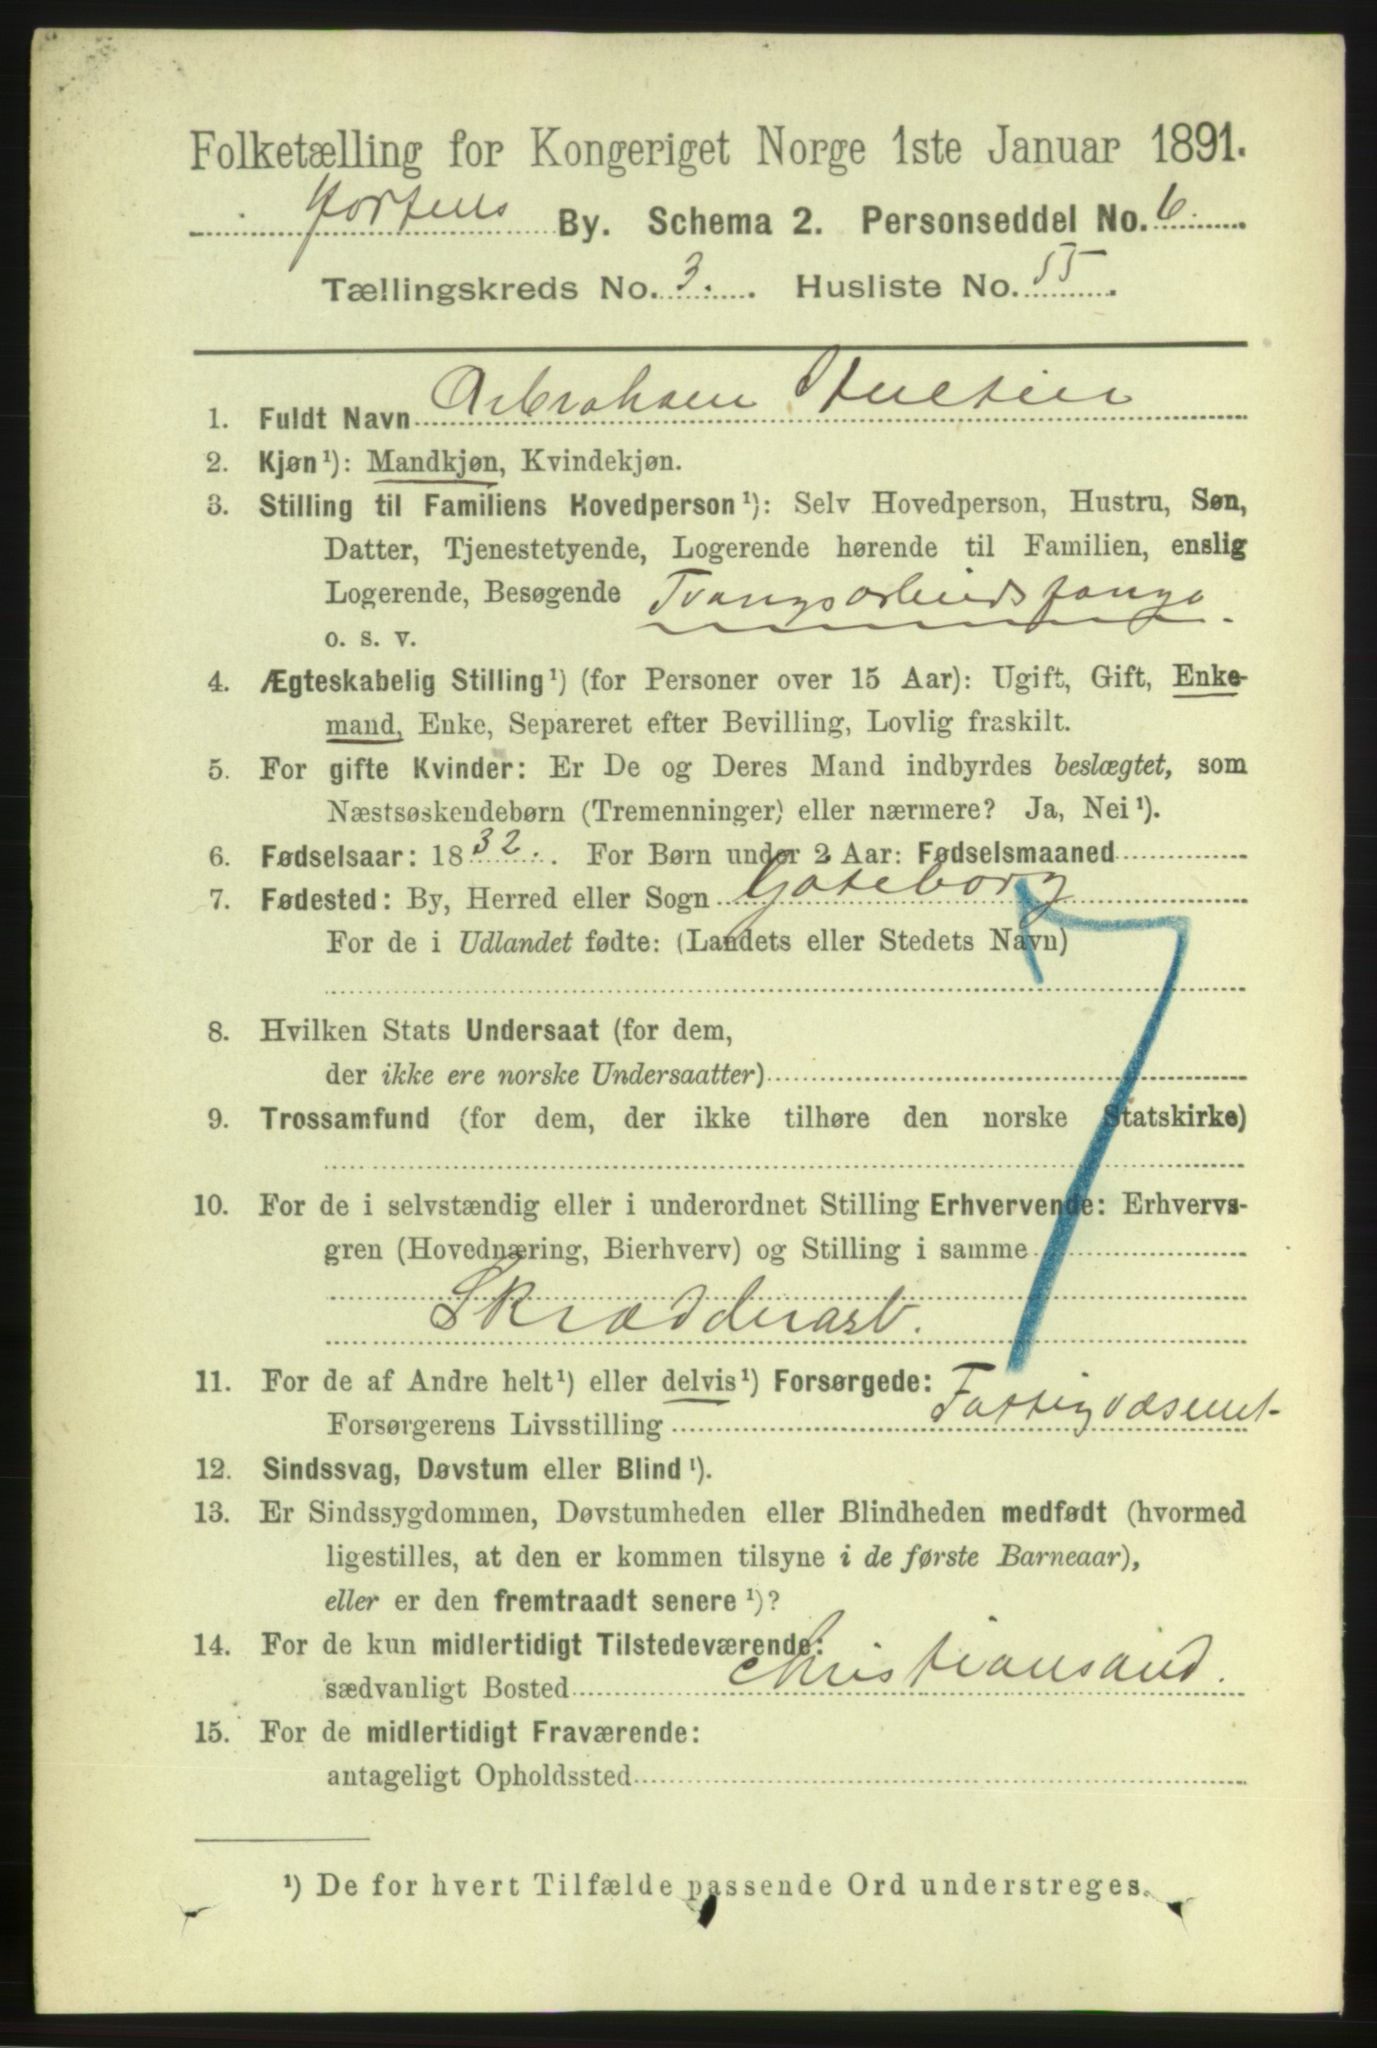 Folketælling for Kongeriget Norge 1ste Januar 1891.
Hortens By. Schema 2. Personseddel No. 6
Tællingskreds No. 3. Husliste No. 55
1. Fuldt Navn Abraham
2. Kjøn¹): Mandkjøn, Kvindekjøn.
3. Stilling til Familiens Hovedperson¹): Selv Hovedperson, Hustru, Søn,
Datter, Tjenestetyende, Logerende hørende til Familien, enslig
Logerende, Besøgende Tvangsarbeidsfange
o. s. v.
4. Ægteskabelig Stilling¹) (for Personer over 15 Aar): Ugift, Gift, Enke-
mand, Enke, Separeret efter Bevilling, Lovlig fraskilt.
5. For gifte Kvinder: Er De og Deres Mand indbyrdes beslægtet, som
Næstsøskendebørn (Tremenninger) eller nærmere? Ja, Nei¹).
6. Fødselsaar: 1832. For Børn under 2 Aar: Fødselsmaaned
7. Fødested: By, Herred eller Sogn Gøteborg
For de i Udlandet fødte: (Landets eller Stedets Navn)
8. Hvilken Stats Undersaat (for dem,
der ikke ere norske Undersaatter)
9. Trossamfund (for dem, der ikke tilhøre den norske Statskirke)
10. For de i selvstændig eller i underordnet Stilling Erhvervende: Erhvervs-
gren (Hovednæring, Bierhverv) og Stilling i samme
Skrædderarb.
11. For de af Andre helt¹) eller delvis¹) Forsørgede:
Forsørgerens Livsstilling Fattigvæsenet
12. Sindssvag, Døvstum eller Blind¹).
13. Er Sindssygdommen, Døvstumheden eller Blindheden medfødt (hvormed
ligestilles, at den er kommen tilsyne i de første Barneaar),
eller er den fremtraadt senere¹)?
14. For de kun midlertidigt Tilstedeværende:
sædvanligt Bosted Christiansand.
15. For de midlertidigt Fraværende:
antageligt Opholdssted
¹) De for hvert Tilfælde passende Ord understreges.
7